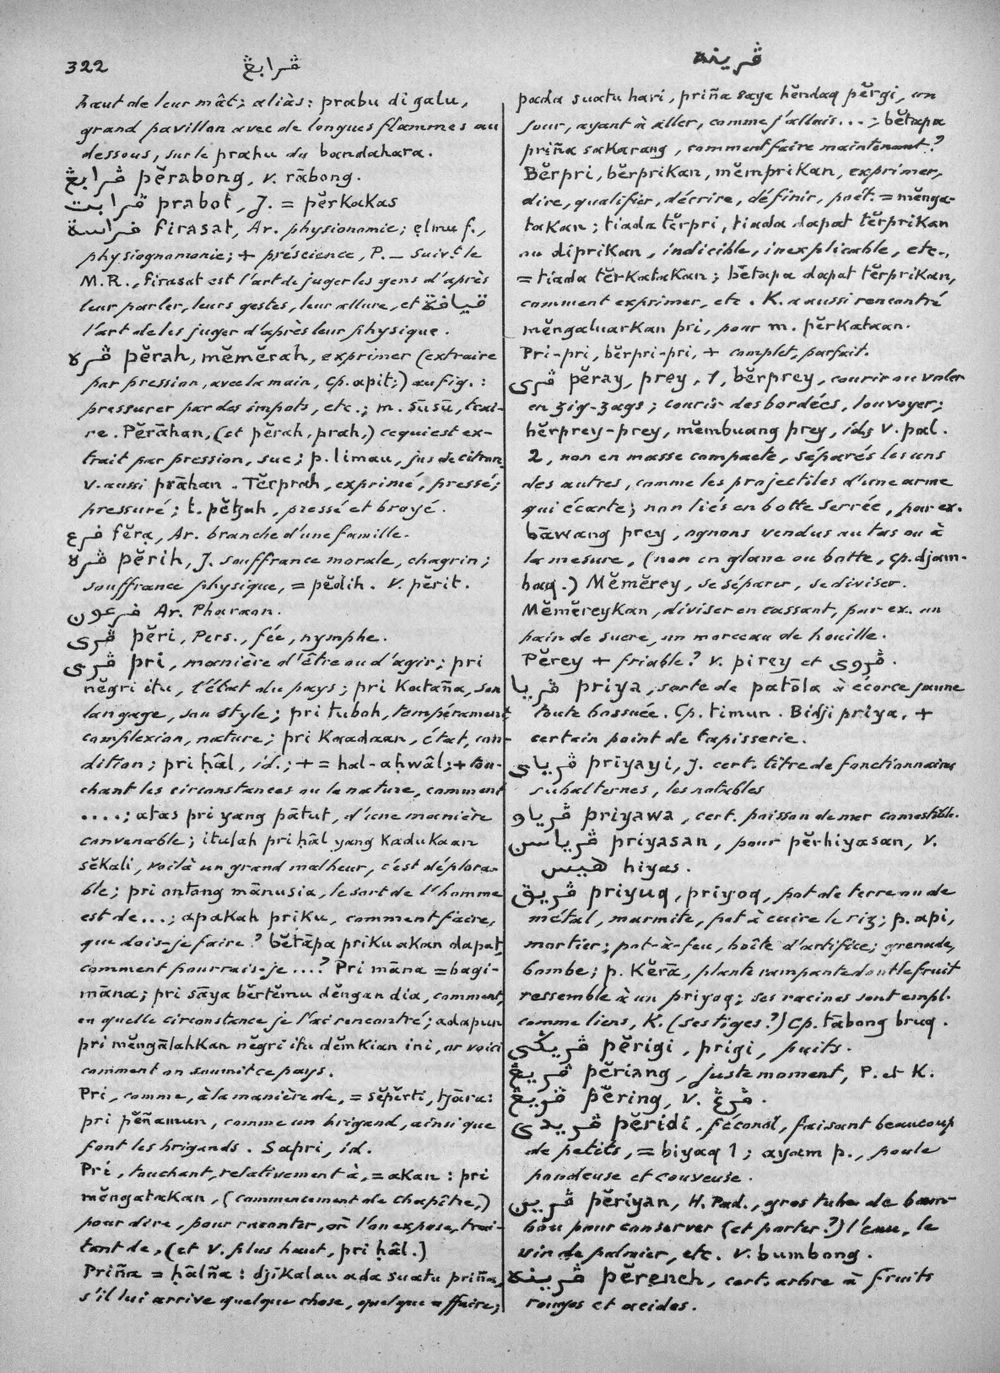 322
ڤرابڠ
ڤرينه
haut de leur mât; aliàs: prabu di galu,
grand pavillon avec de longues flammes au
dessous, sur le prahu du bandahara.
ڤرابڠ pĕrabong, v. rābong.
ڤرابت prabot, J. = pĕrkakas
فراسة firasat, Ar. physionomie; ẹlmu f.,
physiognomonie; + préscience, P. _ Suivt le
M.R., firasat est l'art de juger les gens d'après
leur parler, leurs gestes, leur allure, et قيافة
l'art de les juger d'après leur physique.
ڤره pĕrah, mĕmĕrah, exprimer (extraire
par pression, avec la main, cp. apit;) au fig.:
pressurer par des impots, etc.; m. sūsū, trai-
re. Pĕrāhan, (et pĕrah, prah,) ce qui est ex-
trait par pression, suc; p. limau, jus de citron,
v. aussi prāhan. Tĕrprah, exprimé, pressé;
pressuré; t. pĕtjah, pressé et broyé.
فرع fĕrạ, Ar. branche d'une famille.
ڤره pĕrih, J. souffrance morale, chagrin;
souffrance physique, = pĕdih. v. pĕrit.
فرعون Ar. Pharaon.
ڤري pĕri, Pers., fée, nymphe.
ڤري pri, manière d'être ou d'agir; pri
nĕgri itu, l'état du pays; pri katāña, son
langage, son style; pri tuboh, tempérament
complexion, nature; pri kaadaan, état, con-
dition; pri ḥâl, id.; + = hal-aḥwâl; + tou-
chant les circonstances ou la nature, comment
....; atas pri yang pātut, d'une manière
convenable; itulah pri ḥâl yang kadukaan
sĕkali, voilà un grand malheur, c'est déplora-
ble; pri ontong mānusia, le sort de l'homme
est de...; apakah priku, comment faire,
que dois-je faire? bĕtāpa priku akan dapat,
comment pourrais-je...? Pri māna = bagi-
māna; pri sāya bĕrtĕmu dĕngan dia, comment,
en quelle circonstance je l'ai rencontré; adapun
pri mĕngālahkan nĕgri itu dĕmkian ini, or voici
comment on soumit ce pays.
Pri, comme, à la manière de, = sĕpĕrti, tjāra:
pri pĕñamun, comme un brigand, ainsi que
font les brigands. Sapri, id.
Pri, touchant, relativement à, = akan: pri
mĕngatakan, (commencement de chapître,)
pour dire, pour raconter, où l'on expose, trai-
tant de, (et v. plus haut, pri ḥâl.)
Priña = ḥâlña: djikalau ada suatu priña,
s'il lui arrive quelque chose, quelque affaire;
pada suatu hari, priña saya hĕndaq pĕrgi, un
jour, ayant à aller, comme j'allais...; bĕtapa
priña sakarang, comment faire maintenant?
Bĕrpri, bĕrprikan, mĕmprikan, exprimer,
dire, qualifier, décrire, définir, poét. = mĕnga-
takan; tiada tĕrpri, tiada dapat tĕrprikan
ou diprikan, indicible, inexplicable, etc.,
= tiada tĕrkatakan; bĕtapa dapat tĕrprikan,
comment exprimer, etc. K. a aussi rencontré
mĕngaluarkan pri, pour m. pĕrkataan.
Pri-pri, bĕrpri-pri, + complet, parfait.
ڤري pĕray, prey, 1, bĕrprey, courir ou voler
en zig-zags; courir des bordées, louvoyer;
bĕrprey-prey, mĕmbuang prey, id; v. pal.
2, non en masse compacte, séparés les uns
des autres, comme les projectiles d'une arme
qui écarte; non liés en botte serrée, par ex.
bāwang prey, ognons vendus au tas ou à
la mesure, (non en glane ou botte, cp. djam-
baq.) Mĕmĕrey, se séparer, se diviser.
Mĕmĕreykan, diviser en cassant, par ex. un
pain de sucre, un morceau de houille.
Pĕrey + friable? v. pirey et ڤروي.
ڤريا priya, sorte de patōla à écorce jaune
toute bossuée. Cp. timun. Bidji priya, +
certain point de tapisserie.
ڤرياي priyayi, J. cert. titre de fonctionnaires
subalternes, les notables
ڤرياو priyawa, cert. poisson de mer comestible.
ڤرياسن priyasan, pour pĕrhiyasan, v.
هيس hiyas.
ڤريق priyuq, priyoq, pot de terre ou de
métal, marmite, pot à cuire le riz; p. api,
mortier; pot-à-feu, boîte d'artifice; grenade,
bombe; p. kĕrā, plante rampante dont le fruit
ressemble à un priyoq; ses racines sont empl.
comme liens, K. (ses tiges?) Cp. tābong bruq.
ڤريݢي pĕrigi, prigi, puits.
ڤريڠ pĕriang, juste moment, P. et K.
ڤريڠ pĕring, v. ڤرڠ.
ڤريدي pĕridi, fécond, faisant beaucoup
de petits, = biyaq 1; ayam p., poule
pondeuse et couveuse.
ڤرين pĕriyan, H. Pad., gros tube de bam-
bou pour conserver (et porter?) l'eau, le
vin de palmier, etc. v. bumbong.
ڤرينه pĕrench, cert. arbre à fruits
rouges et acides.